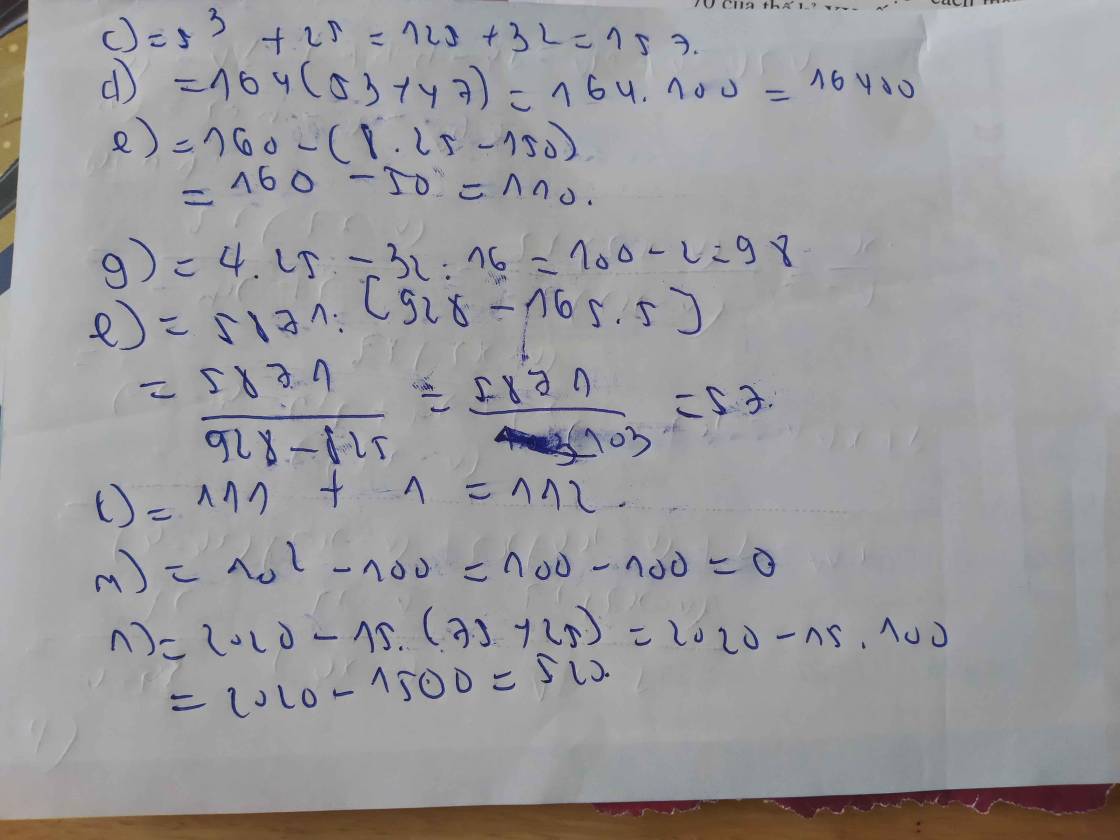 70 của thế kỉ
c) = 5³ + 25 = 125 + 32 = 157.
d) = 164 (53 + 47) = 164. 100 = 16400
e) = 160 - (8. 25 - 150)
= 160 - 50 = 110.
g) = 4. 25 - 32 : 16 = 100 - 2 = 98
e) = 5871 : [928 - 165. 5]
= 5871 / 928 - 825 = 5871 / 103 = 57.
t) = 111 + 1 = 112.
m) = 10² - 100 = 100 - 100 = 0
n) = 2020 - 15. (75 + 25) = 2020 - 15. 100
= 2020 - 1500 = 520.